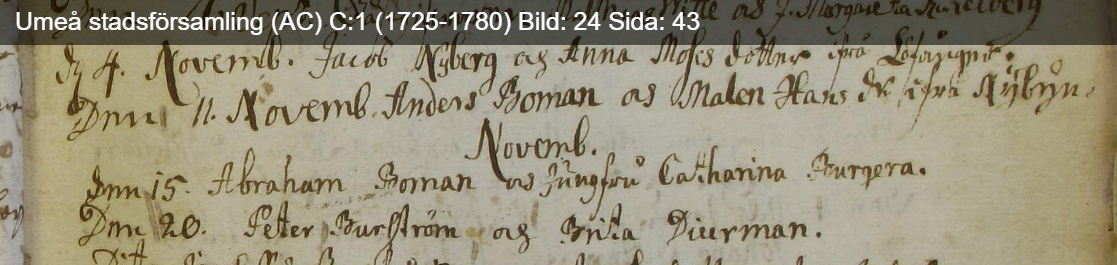 Umeå stadsförsamling (AC) C:1 (1725-1780) Bild: 24 Sida: 43
d. 4. Novemb. Jacob Nyberg och Anna Mosis dotter ifrå Löfånger.
Dnn 11. Novemb. Anders Boman och Malen Hans dr ifrå Nybyn.
Novemb.
Dnn 15. Abraham Boman och Jungfru Catharina Burgera.
Dnn 20. Peter Burström och Brita Diurman.